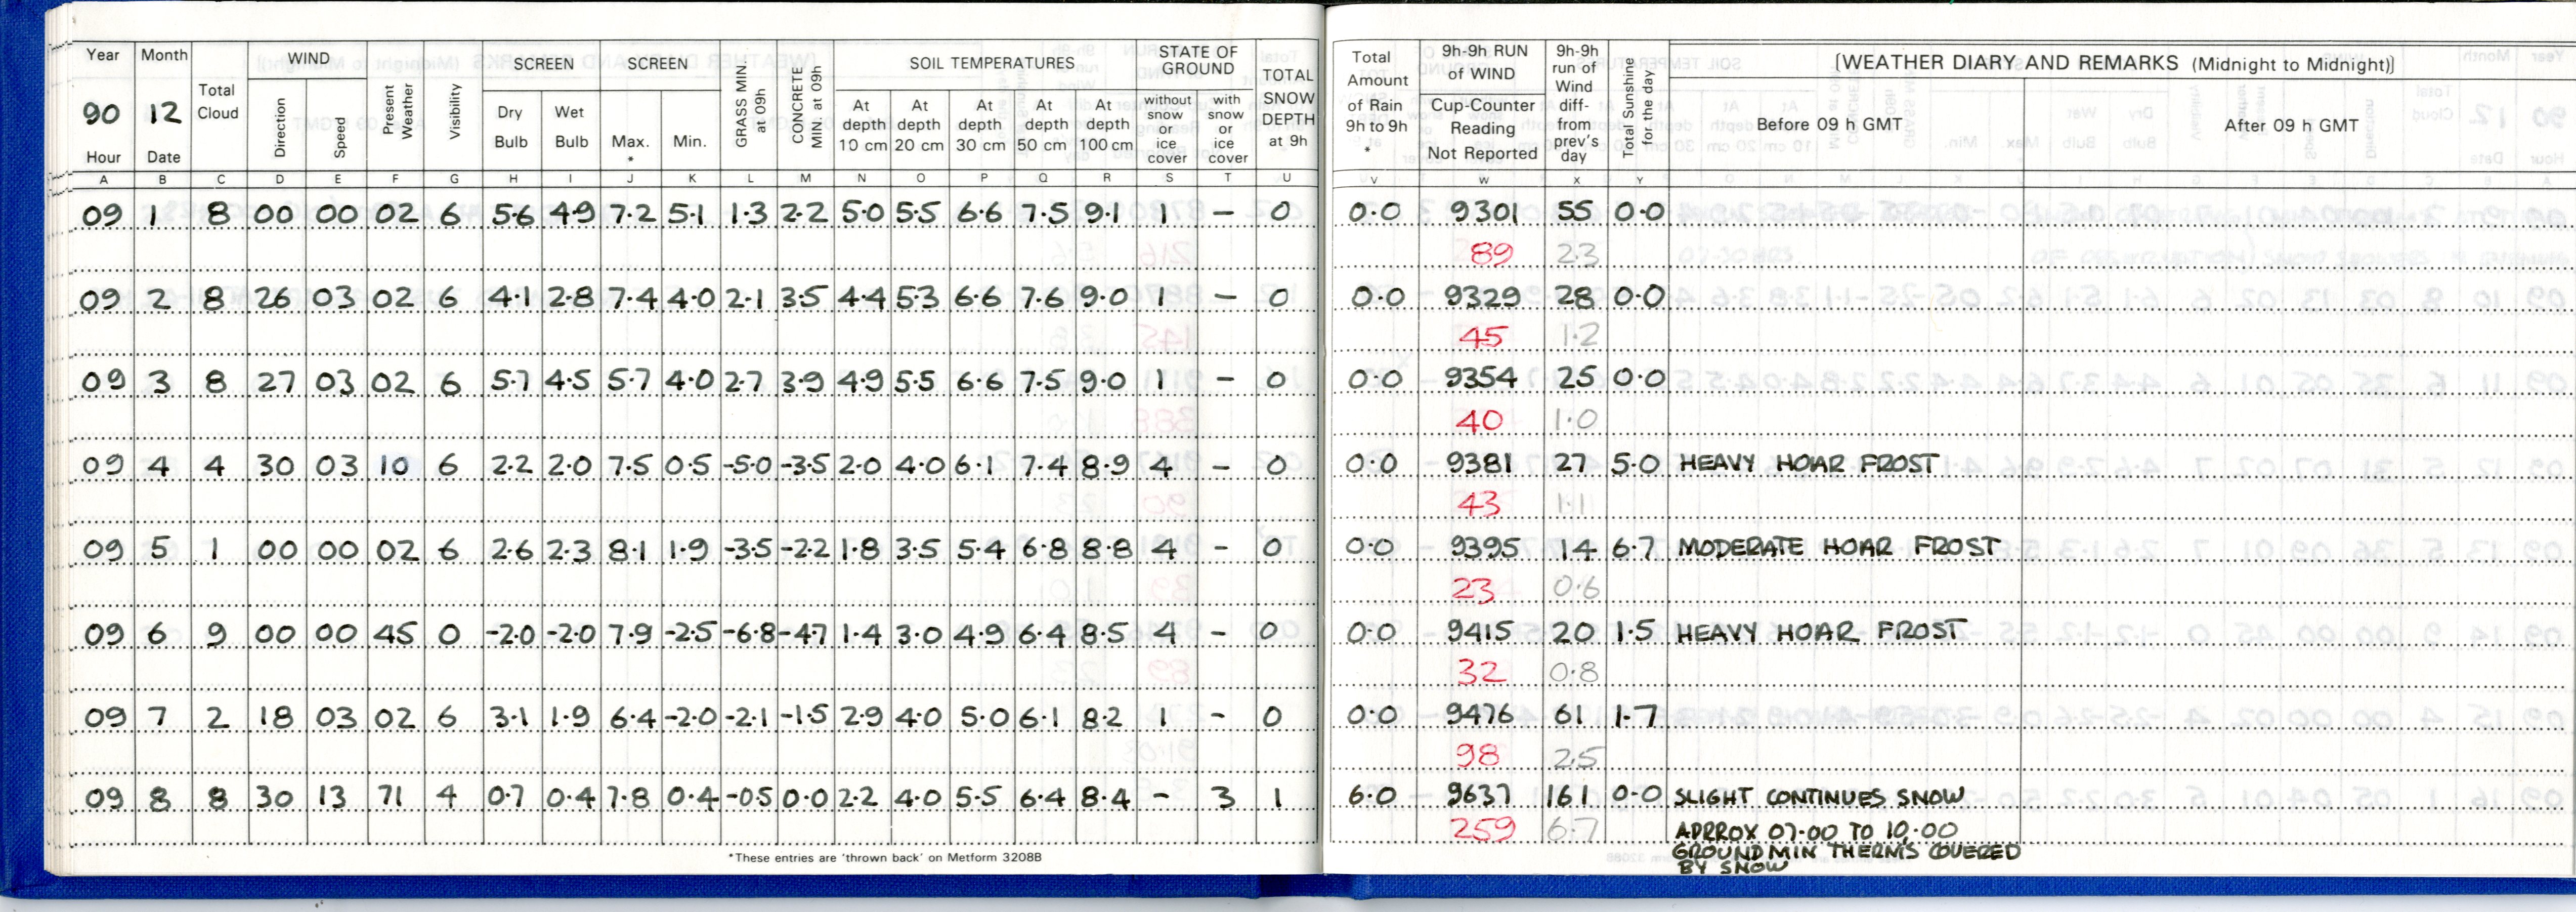 Year Month Total Cloud WIND Present Weather Visibility SCREEN SCREEN GRASS MIN. at 09h CONCRETE MIN. at 09h SOIL TEMPERATURES STATE OF GROUND TOTAL SNOW DEPTH at 9h Total Amount of Rain 9h to 9h * 9h-9h RUN of WIND 9h-9h run of Wind diff- from prev's day Total Sunshine for the day [WEATHER DIARY AND REMARKS (Midnight to Midnight)]
90 12 Direction Speed Dry Bulb Wet Bulb Max. * Min. At depth 10 cm At depth 20 cm At depth 30 cm At depth 50 cm At depth 100 cm without snow or ice cover with snow or ice cover Cup-Counter Reading Not Reported Before 09 h GMT After 09 h GMT
Hour Date
A B C D E F G H I J K L M N O P Q R S T U V W X Y
09 1 8 00 00 02 6 5.6 4.9 7.2 5.1 1.3 2.2 5.0 5.5 6.6 7.5 9.1 1 – 0 0.0 9301 55 0.0
89 2.3
09 2 8 26 03 02 6 4.1 2.8 7.4 4.0 2.1 3.5 4.4 5.3 6.6 7.6 9.0 1 – 0 0.0 9329 28 0.0
45 1.2
09 3 8 27 03 02 6 5.7 4.5 5.7 4.0 2.7 3.9 4.9 5.5 6.6 7.5 9.0 1 – 0 0.0 9354 25 0.0
40 1.0
09 4 4 30 03 10 6 2.2 2.0 7.5 0.5 -5.0 -3.5 2.0 4.0 6.1 7.4 8.9 4 – 0 0.0 9381 27 5.0 HEAVY HOAR FROST
43 1.1
09 5 1 00 00 02 6 2.6 2.3 8.1 1.9 -3.5 -2.2 1.8 3.5 5.4 6.8 8.8 4 – 0 0.0 9395 14 6.7 MODERATE HOAR FROST
23 0.6
09 6 9 00 00 45 0 -2.0 -2.0 7.9 -2.5 -6.8 -4.7 1.4 3.0 4.9 6.4 8.5 4 – 0 0.0 9415 20 1.5 HEAVY HOAR FROST
32 0.8
09 7 2 18 03 02 6 3.1 1.9 6.4 -2.0 -2.1 -1.5 2.9 4.0 5.0 6.1 8.2 1 – 0 0.0 9476 61 1.7
98 2.5
09 8 8 30 13 71 4 0.7 0.4 7.8 0.4 -0.5 0.0 2.2 4.0 5.5 6.4 8.4 – 3 1 6.0 9637 161 0.0 SLIGHT CONTINUES SNOW
259 6.7 APPROX 07.00 TO 10.00
GROUND MIN THERMS COVERED
BY SNOW
*These entries are 'thrown back' on Metform 3208B